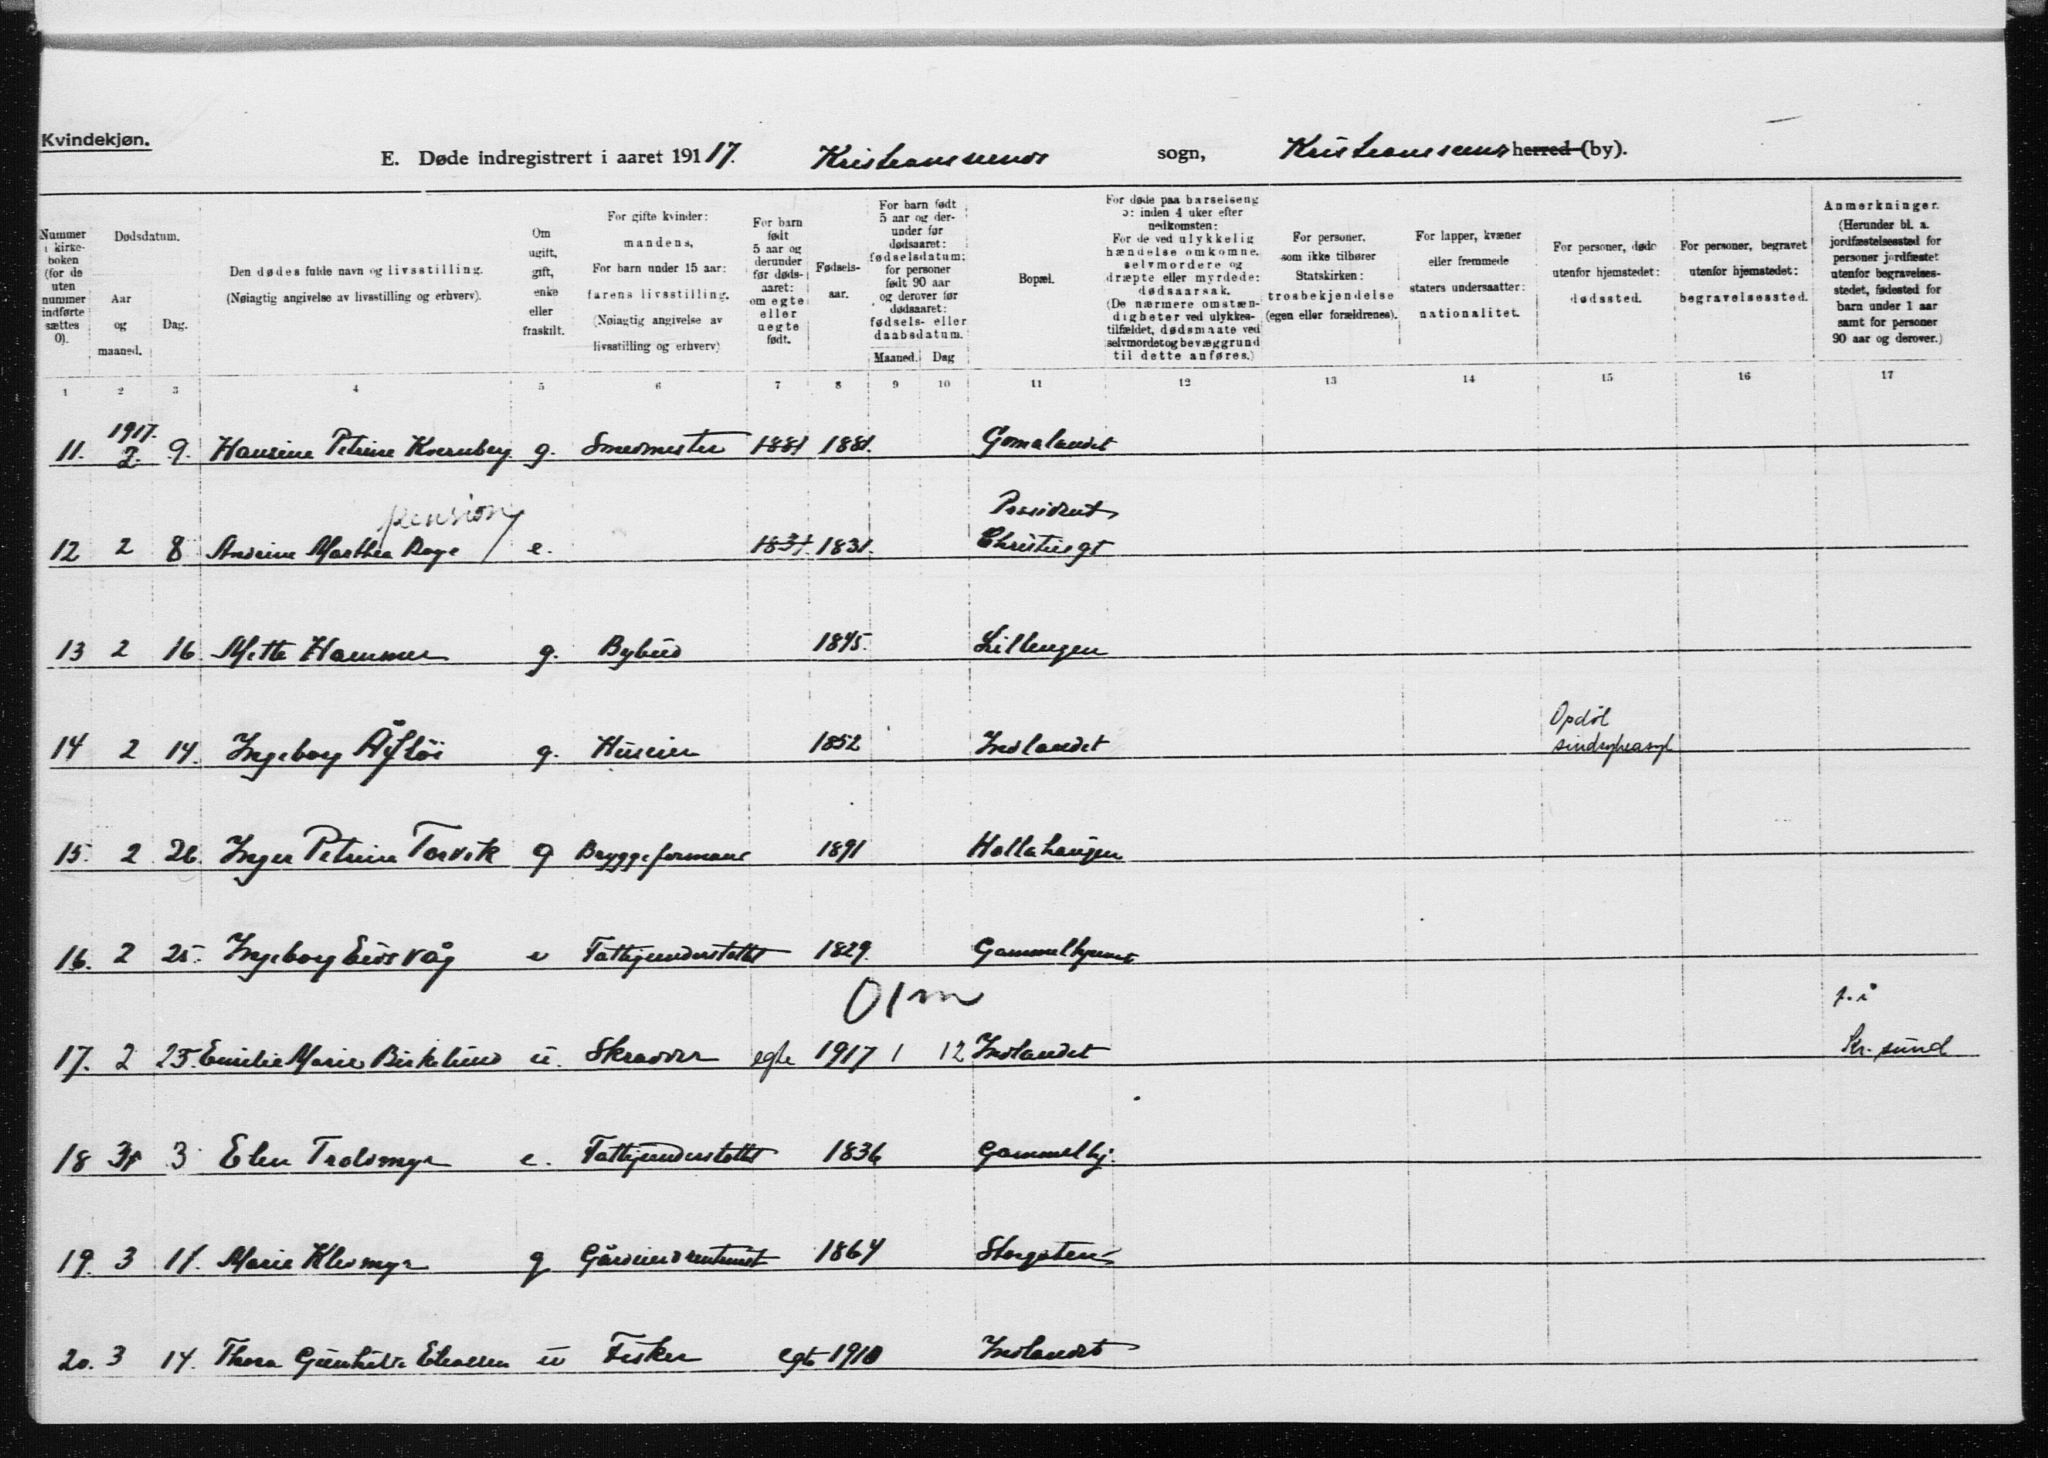 Kvindekjøn.
E. Døde indregistrert i aaret 19117. Kristianssunds sogn, Kristianssunds herred (by).
Nummer i kirkeboken (for de uten nummer indførte sættes 0).
Dødsdatum.
Aar og maaned.
Dag.
Den dødes fulde navn og livsstilling.
(Nøiagtig angivelse av livsstilling og erhverv).
Om ugift, gift, enke eller fraskilt.
For gifte kvinder: mandens,
For barn under 15 aar: farens livsstilling.
(Nøiagtig angivelse av livsstilling og erhverv)
For barn født 5 aar og derunder før dødsaaret: om egte eller uegte født.
Fødselsaar.
For barn født 5 aar og derunder før dødsaaret: fødselsdatum; for personer født 90 aar og derover før dødsaaret: fødsels- eller daabsdatum.
Maaned. Dag
Bopæl.
For døde paa barselseng ɔ: inden 4 uker efter nedkomsten:
For de ved ulykkelig hændelse omkomne, selvmordere og dræpte eller myrdede: dødsaarsak.
(De nærmere omstændigheter ved ulykkestilfældet, dødsmaate ved selvmordet og bevæggrund til dette anføres.)
For personer, som ikke tilhører Statskirken: trosbekjendelse (egen eller forældrenes).
For lapper, kvæner eller fremmede staters undersaatter: nationalitet.
For personer, døde utenfor hjemstedet: dødssted.
For personer, begravet utenfor hjemstedet: begravelsessted.
Anmerkninger.
(Herunder bl. a. jordfæstelsessted for personer jordfæstet utenfor begravelsesstedet, fødested for barn under 1 aar samt for personer 90 aar og derover.)
1 2 3 4 5 6 7 8 9 10 11 12 13 14 15 16 17
1917.
11. 2. 9. Hansine Petrine Kvernberg g. Smedmester 1881 1881. Gomalandet
pension President
12 2 8 Andrine Marthea Roge e. 1831. 1831. Christiesgt
13 2 16 Mette Hammer g. Bybud 1845. Lillengen
Opdøl
14 2 14. Ingeborg g. Huseier 1852 Indlandet sindsykeasyl
15. 2 26. Inger Petrine Torvik g Bryggeformand 1891 Hollahaugen
16. 2 25. Ingeborg Eidsvåg e Fattigunderstøttet 1829. Gammelhjemmet
01m f. i
17. 2 25. Emilie Marie Birkelund u. Skrædder egte 1917 1 12 Indlandet Kr. sund
18 3 3 Elen Troldmyr e. Fattigunderstøttet 1836 Gammelhj.
19. 3 11. Marie Klevmyr g 1864 Storgaten
20. 3 14. Thora Gunhilde u Fisker egte 1910 Indlandet